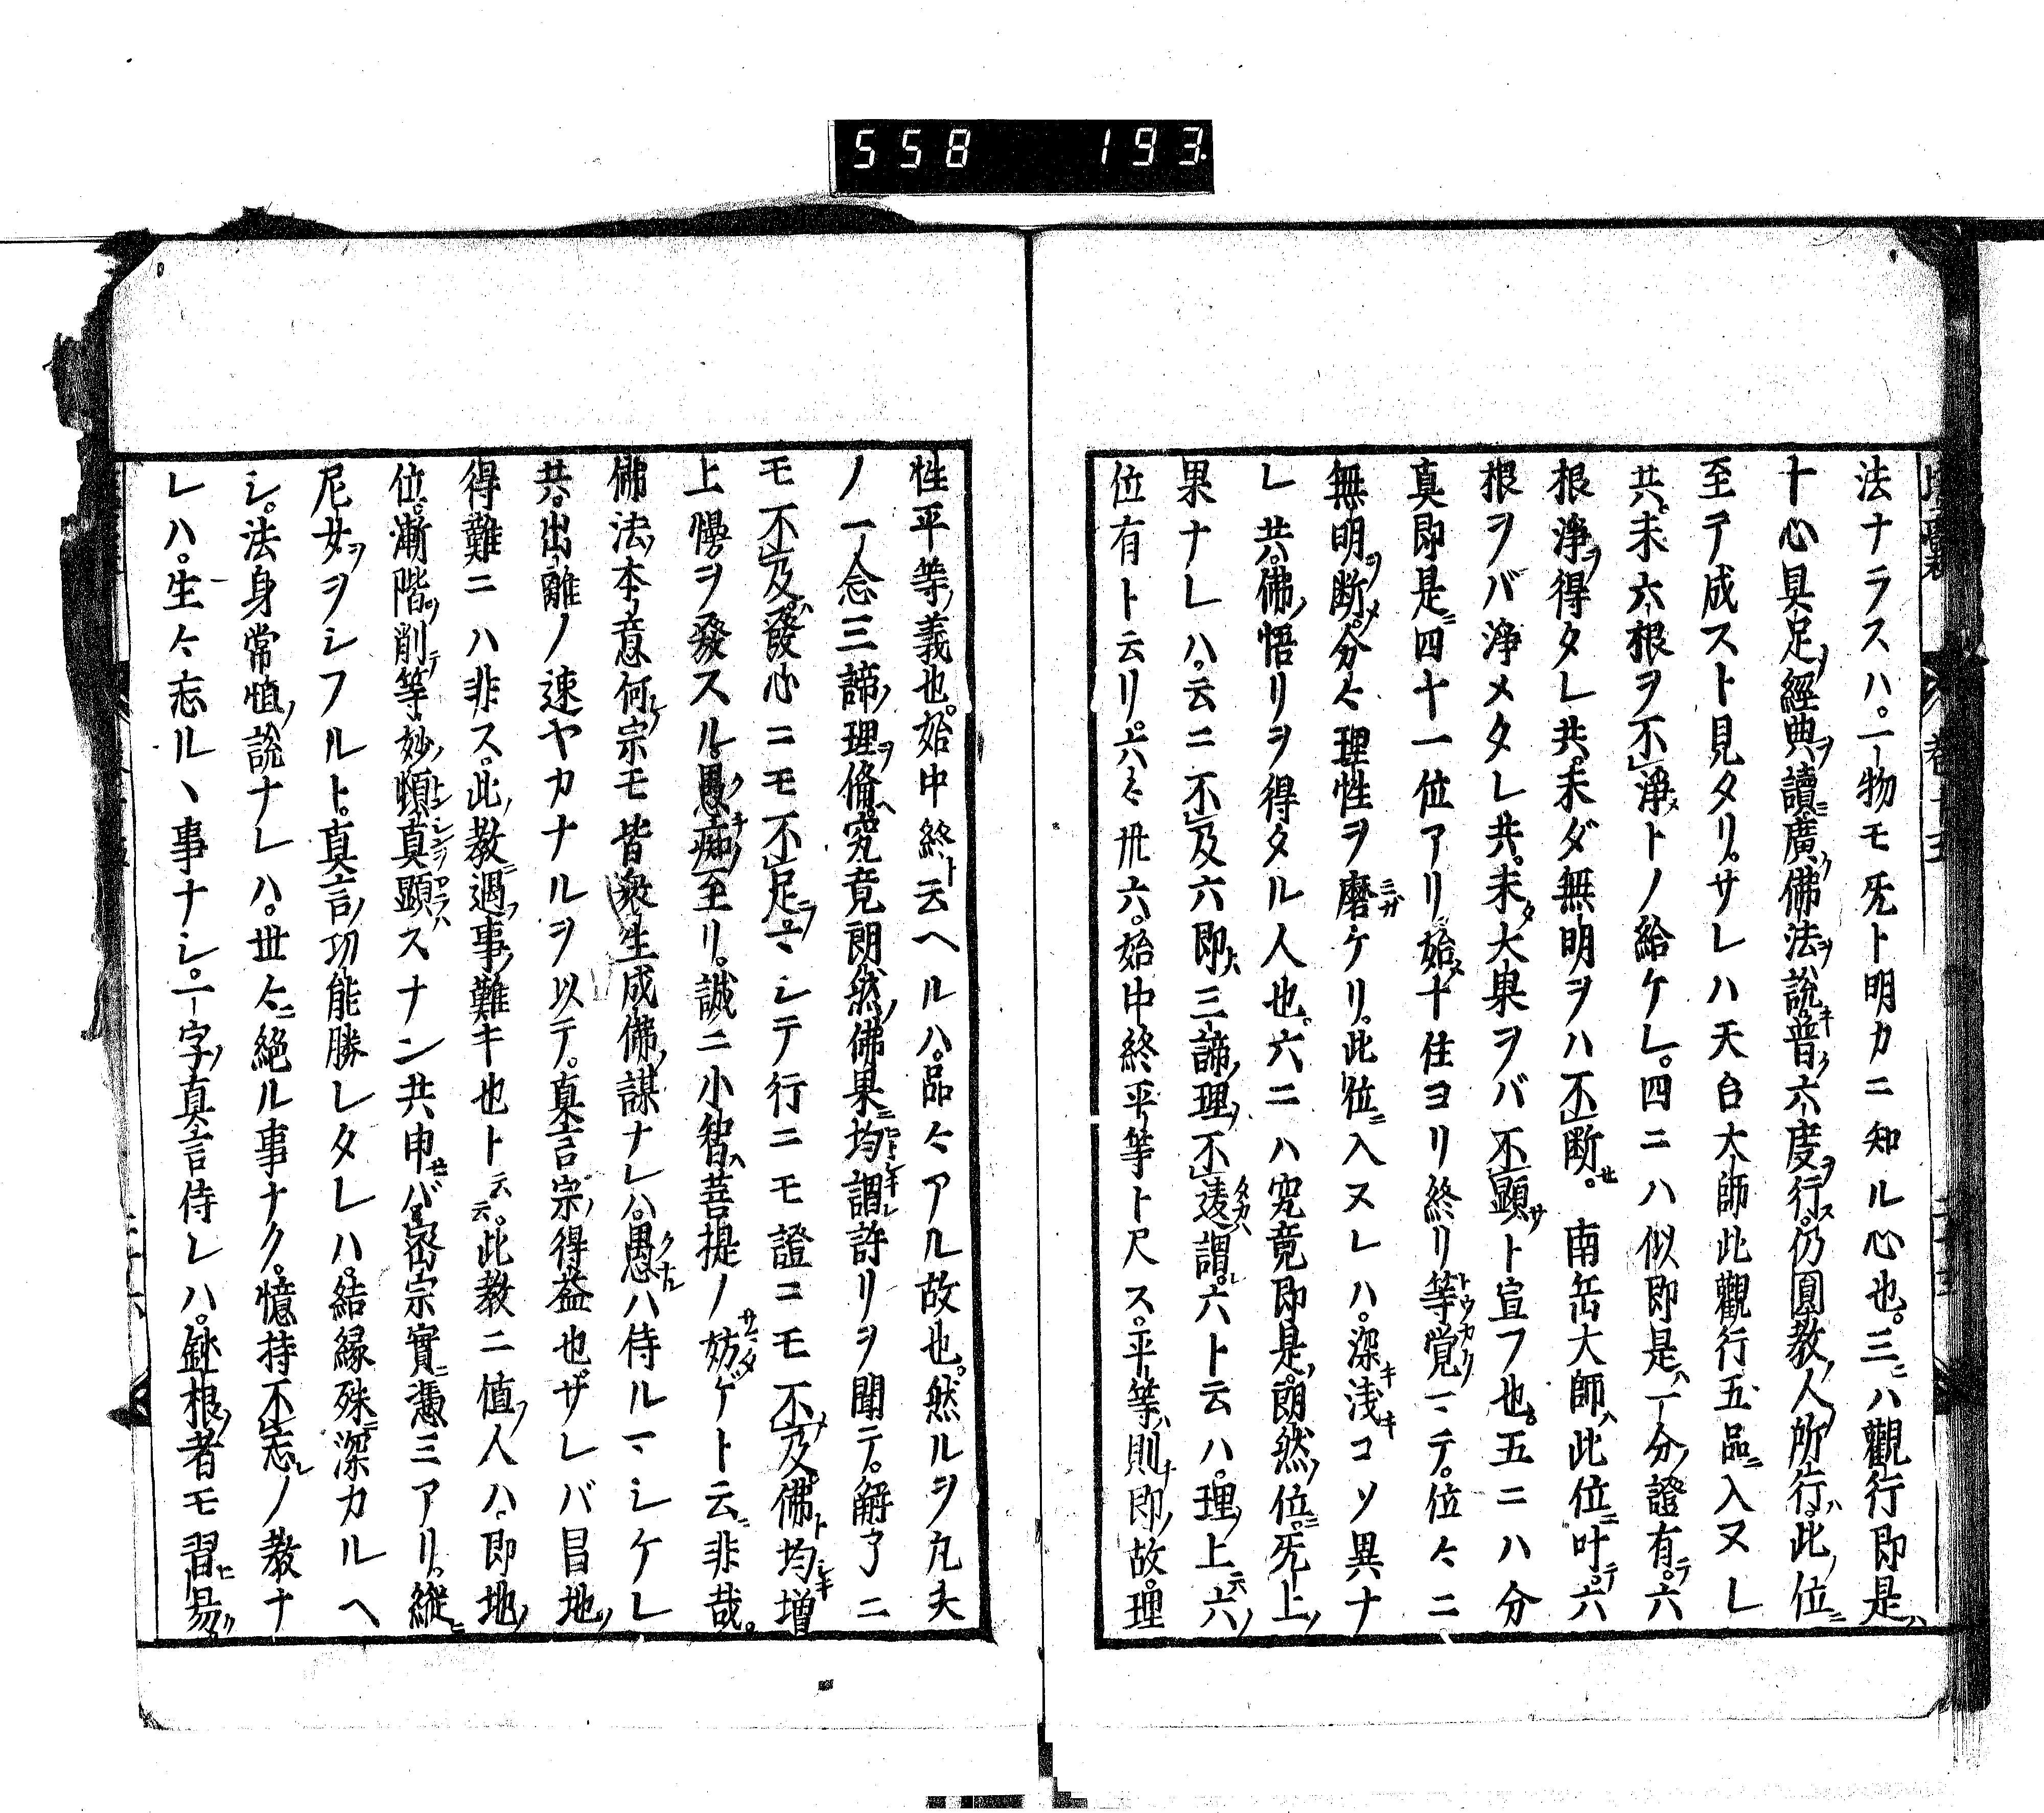 558 193
法ナラスハ。一物モ旡ト明カニ知ル心也。三ニハ觀行即是ハ
十心具足ヲ經典ヲ讀ニ廣ク佛法ヲ說キ普ク六度ヲ行ス。仍圓教ノ人ノ所行ハ。此ノ位ニ
至テ成スト見タリ。サレハ天台大師此觀行五品ニ入ヌレ
共。未六根ヲ不淨メトノ給ケレ。四ニハ似即是ハ一分ノ證有テ。六
根淨ヲ得タレ共。未ダ無明ヲハ不断セ。南岳大師ハ此位ニ叶テ。六
根ヲバ淨メタレ共。未タ大果ヲバ不顯サト宣フ也。五ニハ分
真即是ニ四十一位アリ。始メ十住ヨリ終リ等覚ニテ。位々ニ
無明ヲ断メ。分々理性ヲ磨ケリ。此位ニ入ヌレハ。深キ浅キコソ異ナ
レ共。佛ノ悟リヲ得タル人也。六ニハ究竟即是。朗然ノ位ニ。旡上ノ
果ナレハ。云ニ不及六即ハ。三諦ノ理ノ不違謂レ。六ト云ハ。理ノ上ニ六ノ
位有ト云リ。六々卅六。始中終平等ト尺ス。平等ハ則チ即ノ故。理
性平等ノ義也。始中終ト云ヘルハ。品々アル故也。然ルヲ凡夫
ノ一念三諦ノ理ヲ備ヘ。究竟朗然ノ佛果ニ均謂許リヲ聞テ。解了ニ
モ不及。發心ニモ不足シテ行ニモ證コモ不及。佛ト均キ増
上慢ヲ發スル。愚痴ノ至リ。誠ニ小智ハ菩提ノ妨ゲト云ニ非哉。
佛法ノ本意何レノ宗モ皆衆生成佛ノ謀ナレハ。愚ハ侍ルマシケレ
共。出離ノ速ヤカナルヲ以テ。真言宗ノ得益也。ザレバ昌地ノ
得難ニハ非ス。此ノ教ニ遇フ事ノ難キ也ト云云。此教ニ値ノ人ハ。即地ノ
位。漸階ヲ削テ等妙ノ頓真顯スナン共申セバ。密宗實ニ憑ミアリ。縱ニ
尼女ヲヲシフルト。真言ノ功能勝レタレハ。結縁殊ニ深カルヘ
シ。法身常恒ノ說ナレハ。世々ニ絶ル事ナク。憶持不忘ノ教ナ
レハ。生々忘ルヽ事ナシ。一字ノ真言侍レハ。鈍根ノ者モ習ヒ易ク